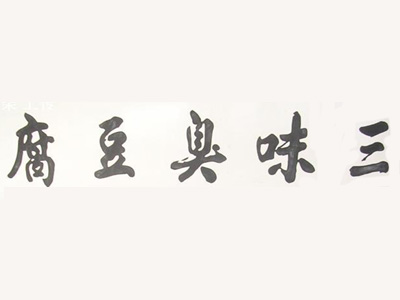 三味臭豆腐